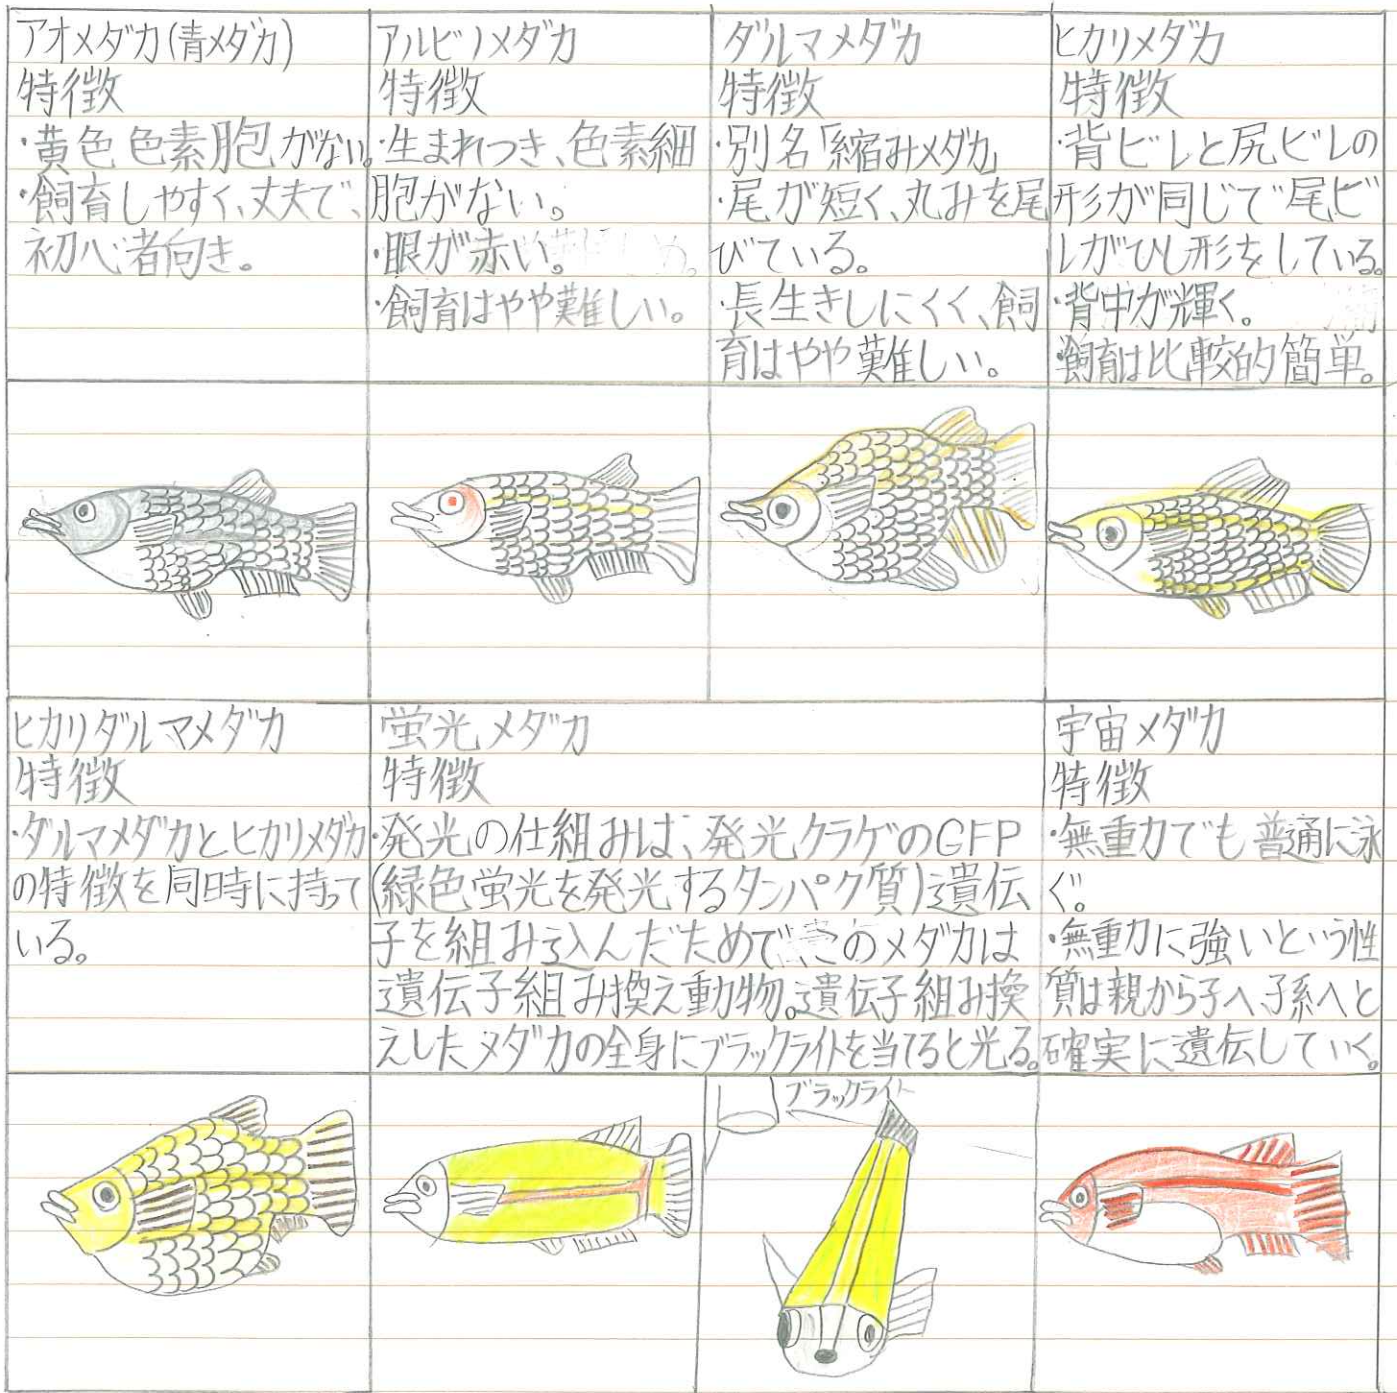 アオメダカ(青メダカ)
特徴
・黄色色素胞がない。
・飼育しやすく、丈夫で、
初心者向き。
アルビノメダカ
特徴
・生まれつき、色素細
胞がない。
・眼が赤い。
・飼育はやや難しい。
ダルマメダカ
特徴
・別名「縮みメダカ」
・尾が短く、丸みを尾
びている。
・長生きしにくく、飼
育はやや難しい。
ヒカリメダカ
特徴
・背ビレと尻ビレの
形が同じで尾ビ
レがひし形をしている。
・背中が輝く。
・飼育は比較的簡単。
ヒカリダルマメダカ
特徴
・ダルマメダカとヒカリメダカ
の特徴を同時に持って
いる。
蛍光メダカ
特徴
・発光の仕組みは、発光クラゲのGFP
(緑色蛍光を発光するタンパク質)遺伝
子を組み込んだためで、このメダカは
遺伝子組み換え動物。遺伝子組み換
えしたメダカの全身にブラックライトを当てると光る。
宇宙メダカ
特徴
・無重力でも普通に泳
ぐ。
・無重力に強いという性
質は親から子へ、子孫へと
確実に遺伝していく。
ブラックライト